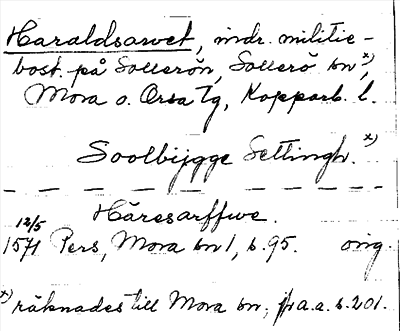 Haraldsarvet, indr. militie-
bost. på Sollerön, Sollerö sn x),
Mora o. Orsa tg, Kopparb. l.
Soolbijgge Settingh. x)
Häresarffwe.
12/5
1571 Pers, Mora sn 1, s. 95. orig.
x) räknades till Mora sn; a.a. s. 201.